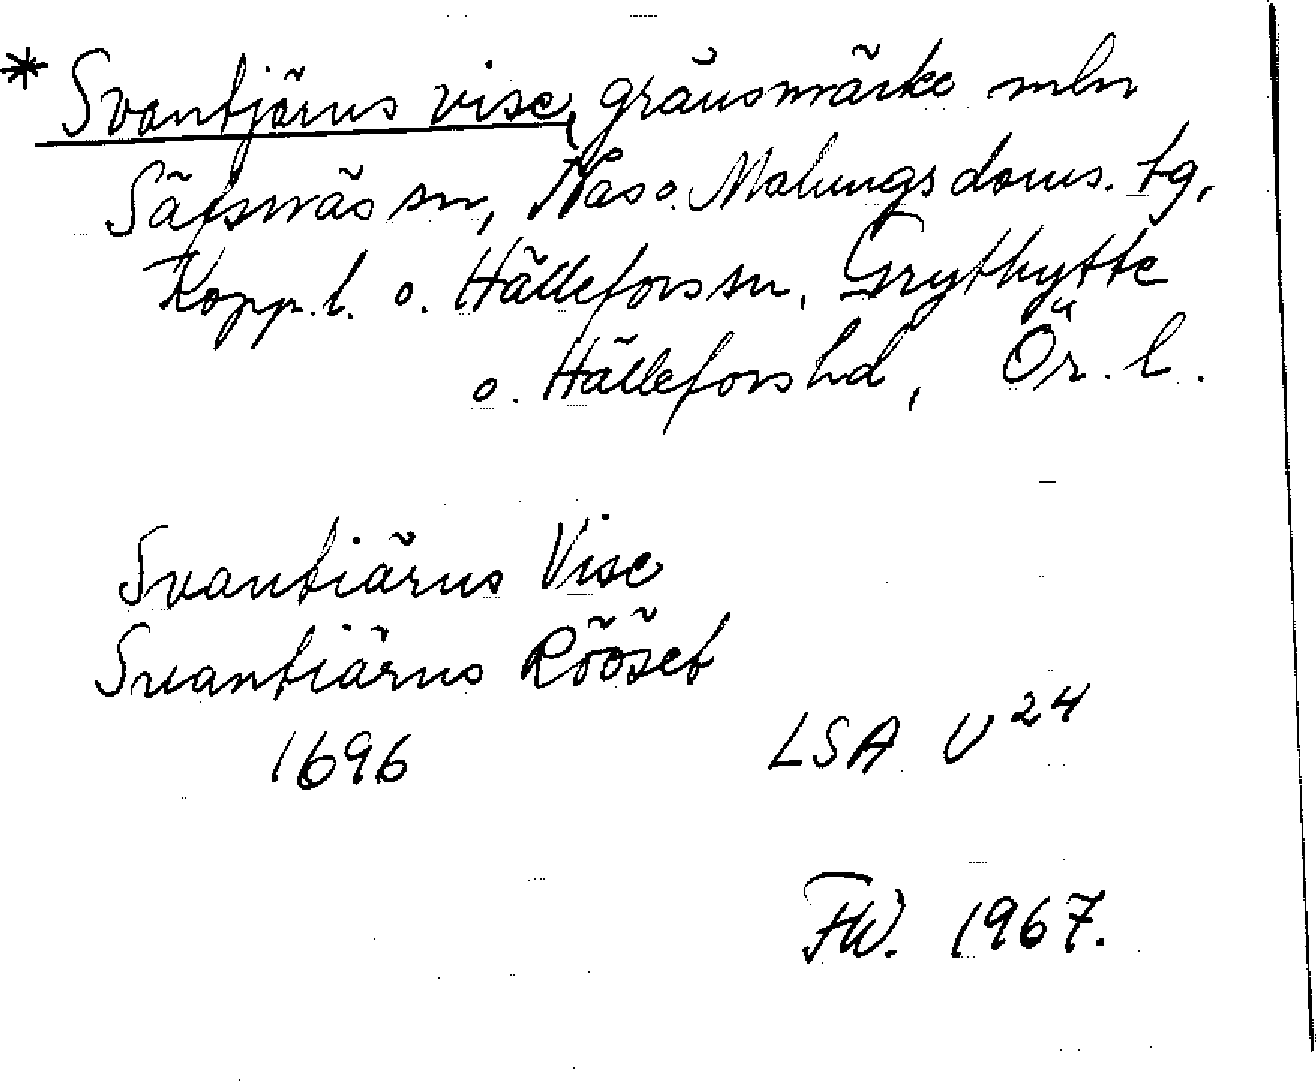 * Svantjärns vise, gränsmärke mln
Säfsnäs sn, Näs o. Malungs doms. tg,
Kopp. l. o. Hällefors sn, Grythytte
o. Hällefors hd, Ör. l.
Svantiärns Vise
Svantiärns Rööset
1696 LSA U 24
FW. 1967.